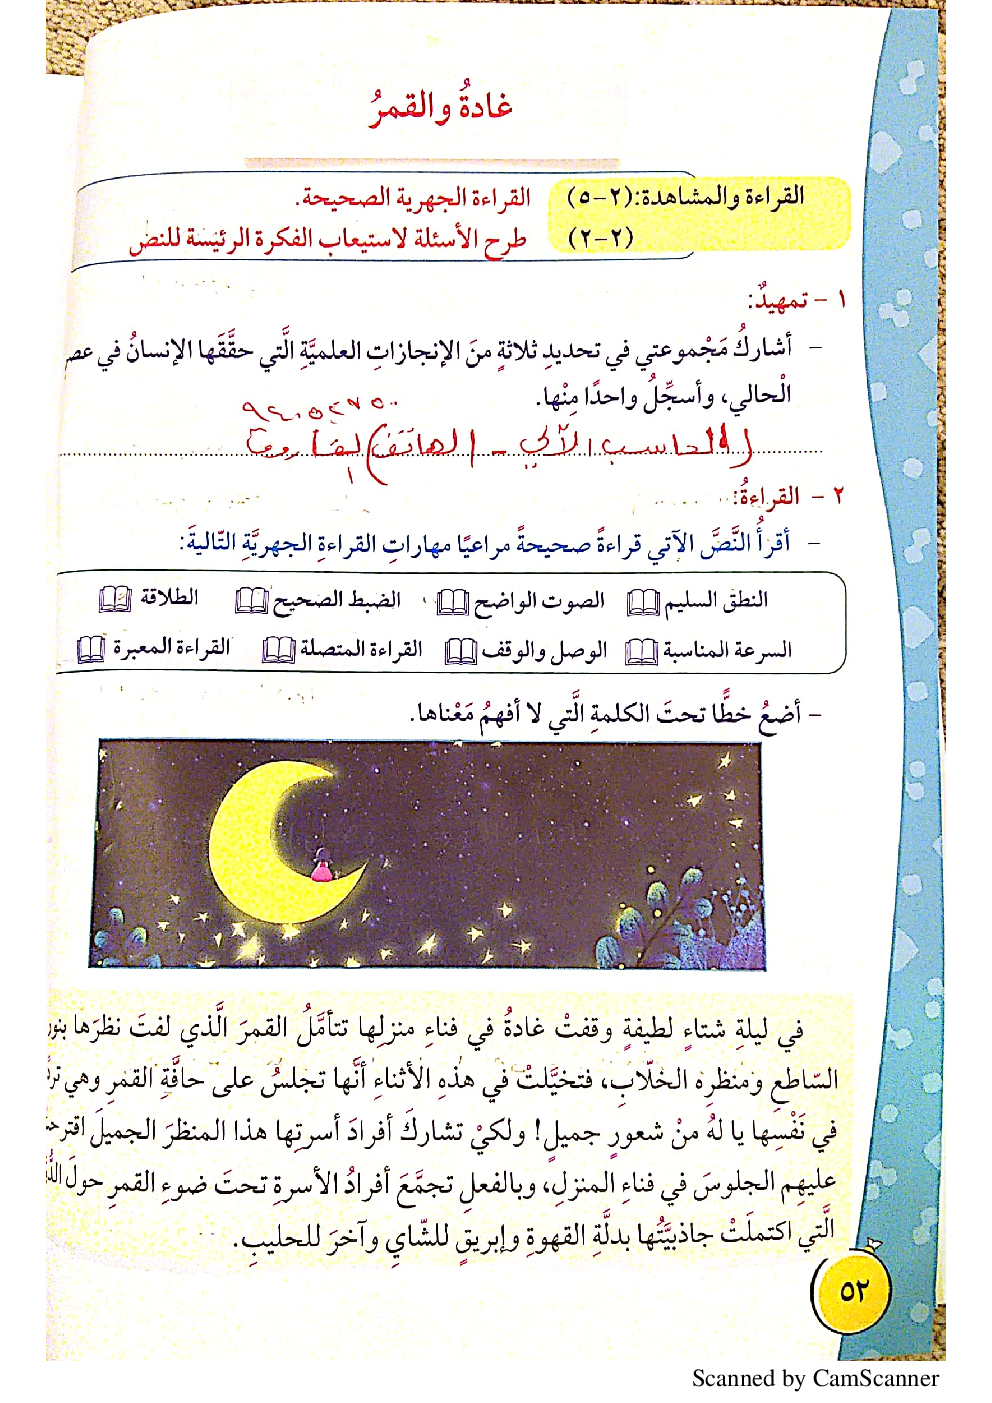 غادةُ والقمرُ
القراءة والمشاهدة: (٢-٥) القراءة الجهرية الصحيحة.
(٢-٢) طرح الأسئلة لاستيعاب الفكرة الرئيسة للنص
١ - تمهيدٌ:
- أشاركُ مَجْموعتي في تحديدِ ثلاثةٍ منَ الإنجازاتِ العلميَّةِ الَّتي حقَّقَها الإنسانُ في
الْحالي، وأسجِّلُ واحدًا مِنْها.
(الحاسب الآلي - الهاتف)
٢ - القراءةُ:
- أقرأُ النَّصَّ الآتي قراءةً صحيحةً مراعيًا مهاراتِ القراءةِ الجهريَّةِ التّاليةَ:
النطق السليم الصوت الواضح الضبط الصحيح الطلاقة
السرعة المناسبة الوصل والوقف القراءة المتصلة القراءة المعبرة
- أضعُ خطًّا تحتَ الكلمةِ الَّتي لا أفهمُ مَعْناها.
في ليلةِ شتاءٍ لطيفةٍ وقفتْ غادةُ في فناءِ منزلِها تتأمَّلُ القمرَ الَّذي لفتَ نظرَها
السّاطعِ ومنظرِه الخلّابِ، فتخيَّلتْ في هذِه الأثناءِ أنَّها تجلسُ على حافَّةِ القمرِ وهي
في نَفْسِها يا لهُ منْ شعورٍ جميلٍ! ولكيْ تشاركَ أفرادَ أسرتِها هذا المنظرَ الجميلَ
عليهِم الجلوسَ في فناءِ المنزلِ، وبالفعلِ تجمَّعَ أفرادُ الأسرةِ تحتَ ضوءِ القمرِ حولَ
الَّتي اكتملَتْ جاذبيَّتُها بدلَّةِ القهوةِ وإبريقٍ للشّايِ وآخرَ للحليبِ.
٥٢
Scanned by CamScanner